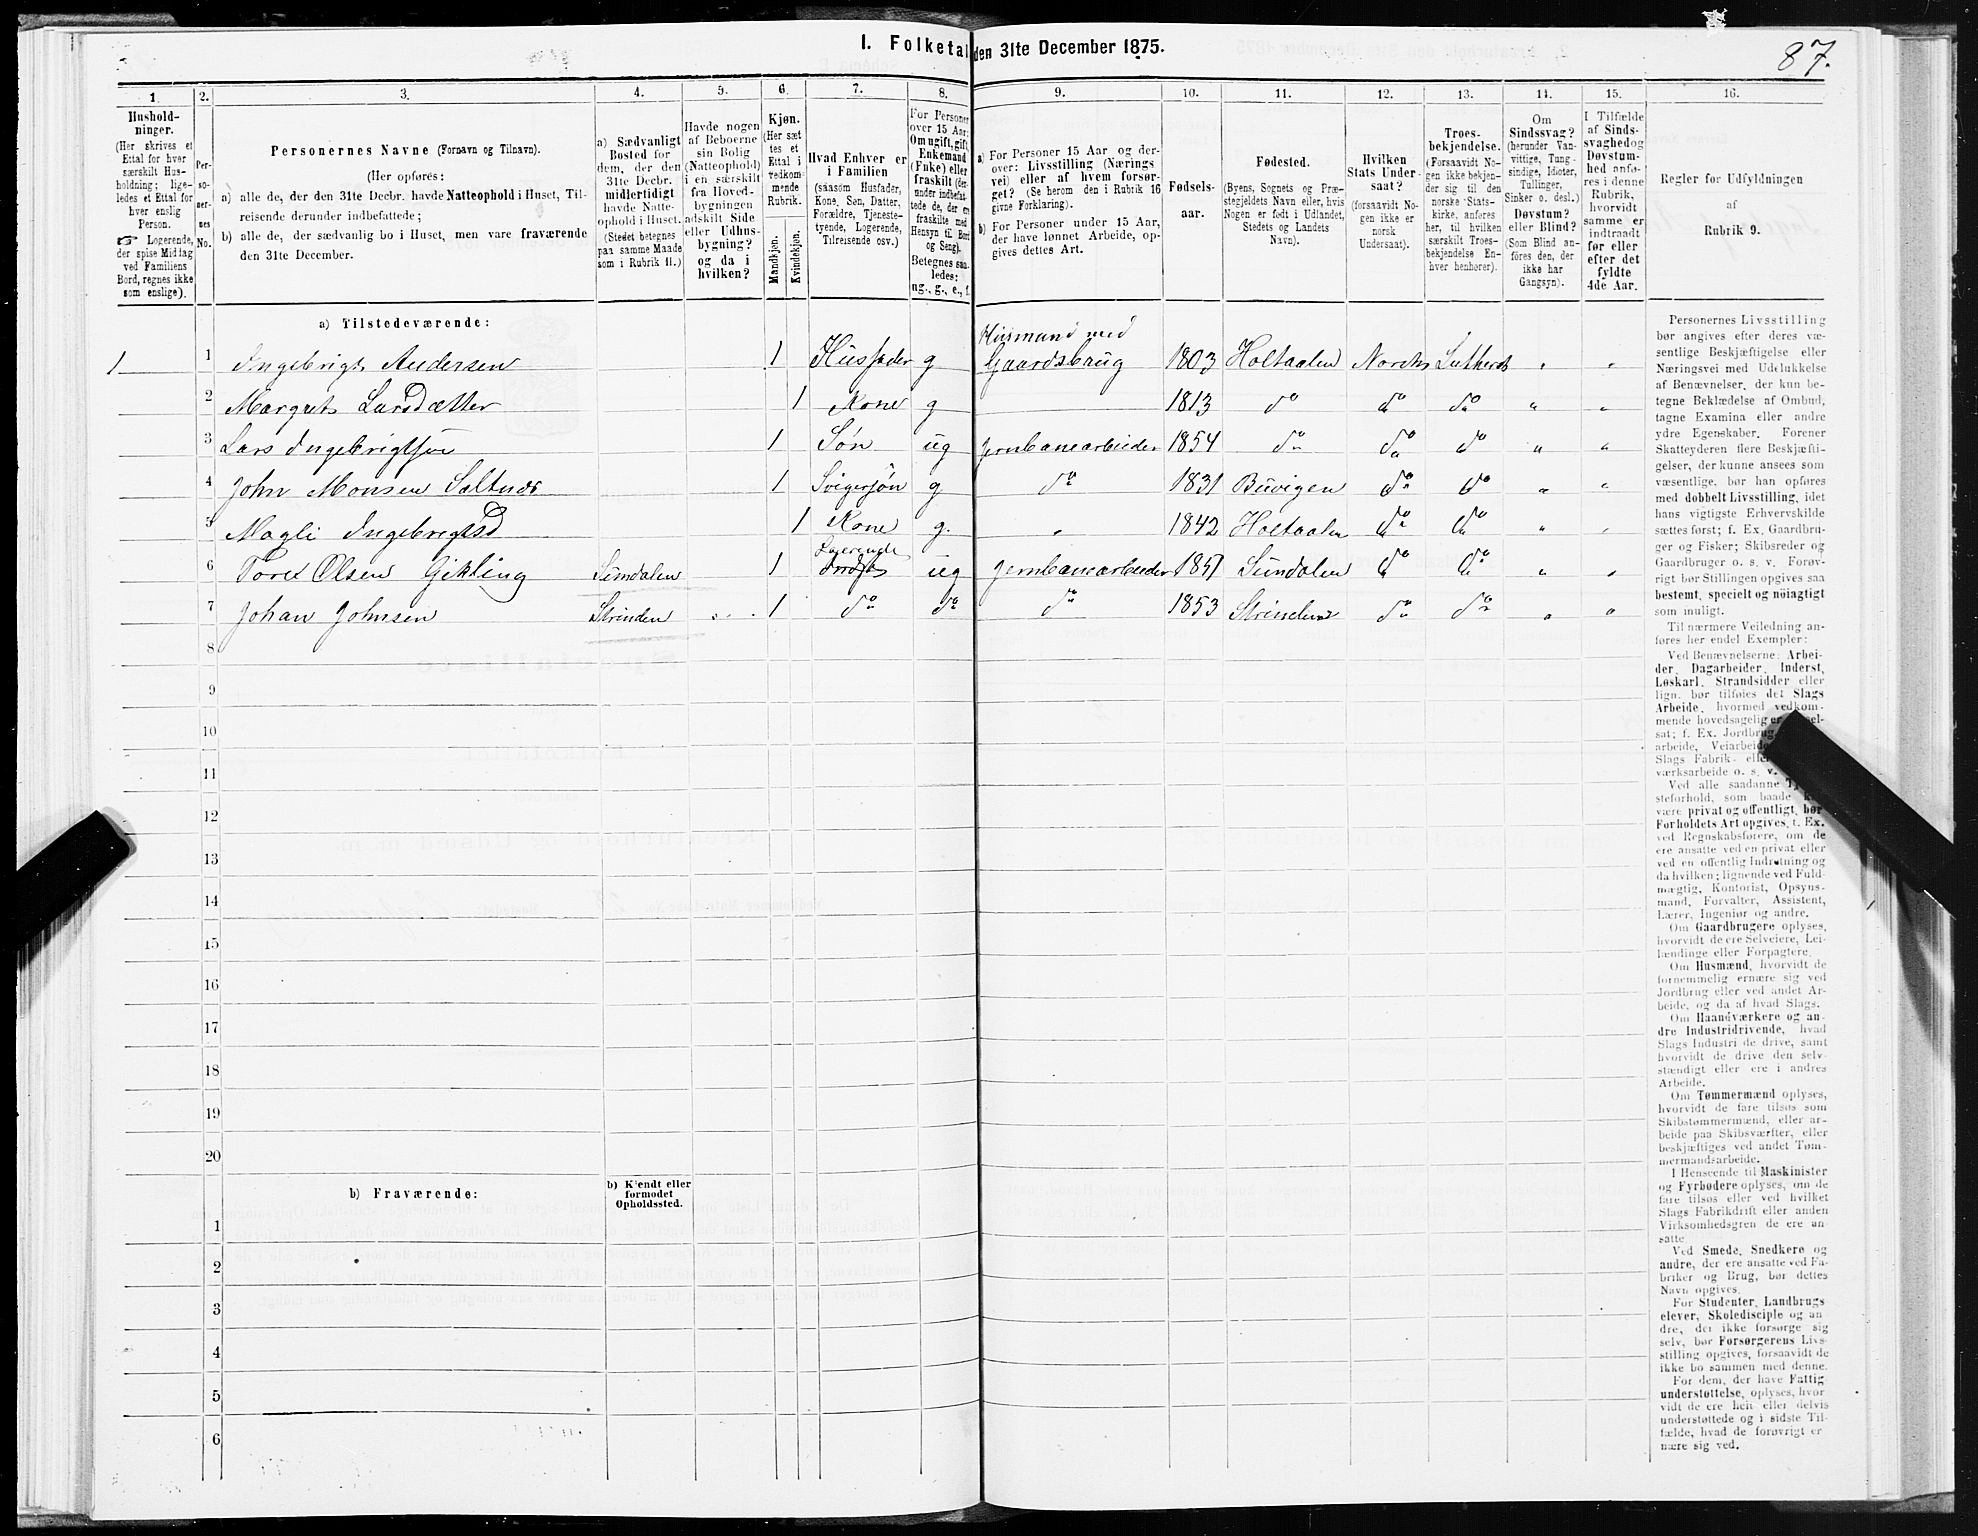 I. Folketal den 31te December 1875.
87.
1. 2. 3. 4. 5. 6. 7. 8. 9. 10. 11. 12. 13. 14. 15. 16.
Hushold-
ninger.
(Her skrives et
Ettal for hver
særskilt Hus-
holdning; lige-
ledes et Ettal for
hver enslig
Person.
☞ Logerende,
der spise Middag
ved Familiens
Bord, regnes ikke
som enslige).
Per-
so-
ner-
nes
No.
Personernes Navne (Fornavn og Tilnavn).
(Her opføres:
a) alle de, der den 31te Decbr. havde Natteophold i Huset, Til-
reisende derunder indbefattede;
b) alle de, der sædvanlig bo i Huset, men vare fraværende
den 31te December.
a) Sædvanligt
Bosted for
dem, der den
31te Decbr.
midlertidigt
havde Natte-
ophold i Huset.
(Stedet betegnes
paa samme Maade
som i Rubrik 11.)
Havde nogen
af Beboerne
sin Bolig
(Natteophold)
i en særskilt
fra Hoved-
bygningen
adskilt Side
eller Udhus-
bygning?
og da i
hvilken?
Kjøn.
(Her sæt
tes et
Ettal i
vedkom-
mende
Rubrik.
Mandkjøn.
Kvindekjøn.
Hvad Enhver er
i Familien
(saasom Husfader,
Kone, Søn, Datter,
Forældre, Tjeneste-
tyende, Logerende,
Tilreisende osv.)
For Personer
over 15 Aar:
Om ugift, gift,
Enkemand
(Enke) eller
fraskilt (der-
under indbefat-
tede de, der er
fraskilte med
Hensyn til Bord
og Seng).
Betegnes saa-
ledes:
ug., g., e., f.
a) For Personer 15 Aar og der-
over: Livsstilling (Nærings
vei) eller af hvem forsør-
get? (Se herom den i Rubrik 16
givne Forklaring).
b) For Personer under 15 Aar,
der have lønnet Arbeide, op-
gives dettes Art.
Fødsels-
aar.
Fødested.
(Byens, Sognets og Præ-
stegjeldets Navn eller, hvis
Nogen er født i Udlandet,
Stedets og Landets
Navn).
Hvilken
Stats Under-
saat?
(forsaavidt No-
gen ikke er
norsk
Undersaat).
Troes-
bekjendelse.
(Forsaavidt No-
gen ikke bekjen-
der sig til den
norske Stats-
kirke, anføres
her, til hvilken
særskilt Troes-
bekjendelse En-
hver henhører).
Om
Sindssvag?
(herunder Van-
vittige, Tung-
sindige, Idioter,
Tullinger,
Sinker o. desl.)
Døvstum?
eller Blind?
(Som Blind an-
føres den, der
ikke har
Gangsyn).
I Tilfælde
af Sinds-
svaghed og
Døvstum-
hed anfø-
res i denne
Rubrik,
hvorvidt
samme er
indtraadt
før eller
efter det
fyldte
4de Aar.
Regler for Udfyldningen
af
Rubrik 9.
a) Tilstedeværende:
1 1 Ingebrigt Andersen 1 Husfader g Husmand med Gaardsbrug 1803 Holtaalen Norsk Luthersk " "
2 Margret Larsdatter 1 Kone g 1813 do do do " "
3 Lars Ingebrigtsøn 1 Søn ug Jernbanearbeider 1854 do do do " "
4 John Monsen Saltnes 1 Svigersøn g do 1831 Buvigen do do " "
5 Magli Ingebrigtsd 1 Kone g. " 1842 Holtaalen do do " "
6 Tore Olsen Gikling Sundalen 1 Logerende ug Jernbanearbeider 1851 Sundalen do do " "
7 Johan Johnsen Strinden 1 do do do 1853 Strinden do do " "
8
9
10
11
12
13
14
15
16
17
18
19
20
b) Fraværende:
b) Kjendt eller
formodet
Opholdssted.
1
2
3
4
5
6
Personernes Livsstilling
bør angives efter deres væ-
sentlige Beskjæftigelse eller
Næringsvei med Udelukkelse
af Benævnelser, der kun be-
tegne Beklædelse af Ombud,
tagne Examina eller andre
ydre Egenskaber. Forener
Skatteyderen flere Beskjæfti-
gelser, der kunne ansees som
væsentlige, bør han opføres
med dobbelt Livsstilling, idet
hans vigtigste Erhvervskilde
sættes først; f. Ex. Gaardbru-
ger og Fisker; Skibsreder og
Gaardbruger o. s. v. Forøv-
rigt bør Stillingen opgives saa
bestemt, specielt og nøiagtigt
som muligt.
Til nærmere Veiledning an-
føres her endel Exempler:
Ved Benævnelserne: Arbei-
der, Dagarbeider, Inderst,
Løskarl, Strandsidder eller
lign. bør tilføies det Slags
Arbeide, hvormed vedkom-
mende hovedsagelig er
sat; f. Ex. Jordbrug
arbeide, Veiarbeide
Slags Fabrik- eller
værksarbeide o. s. v.
Ved alle saadanne
steforhold, som baade
være privat og offentligt, bør
Forholdets Art opgives, t. Ex.
ved Regnskabsførere, om de
ere ansatte ved en privat eller
ved en offentlig Indretning og
da hvilken; lignende ved Fuld-
mægtig, Kontorist, Opsyns-
mand, Forvalter, Assistent,
Lærer, Ingeniør og andre.
Om Gaardbrugere oplyses,
hvorvidt de ere Selveiere, Lei-
lændinge eller Forpagtere.
Om Husmænd, hvorvidt de
fornemmelig ernære sig ved
Jordbrug eller ved andet Ar-
beide, og da af hvad Slags.
Om Haandværkere og an-
dre Industridrivende, hvad
Slags Industri de drive, samt
hvorvidt de drive den selv-
stændigt eller ere i andres
Arbeide.
Om Tømmermænd oplyses,
hvorvidt de fare tilsøs som
Skibstømmermænd, eller ar-
beide paa Skibsværfter, eller
beskjæftiges ved andet Tøm-
mermandsarbeide.
I Henseende til Maskinister
og Fyrbødere oplyses, om de
fare tilsøs eller ved hvilket
Slags Fabrikdrift eller anden
Virksomhedsgren de ere an-
satte.
Ved Smede, Snedkere og
andre, der ere ansatte ved Fa-
briker og Brug, bør dettes
Navn opgives.
For Studenter, Landbrugs
elever, Skoledisciple og an-
dre, der ikke forsørge sig
selv, bør Forsørgerens Livs-
stilling opgives, forsaavidt de
ikke bo sammen med denne.
For dem, der have Fattig
understøttelse, oplyses, hvor
vidt de ere helt eller delvis
understøttede og i sidste Til-
fælde, hvad de forøvrigt er
nære sig ved.